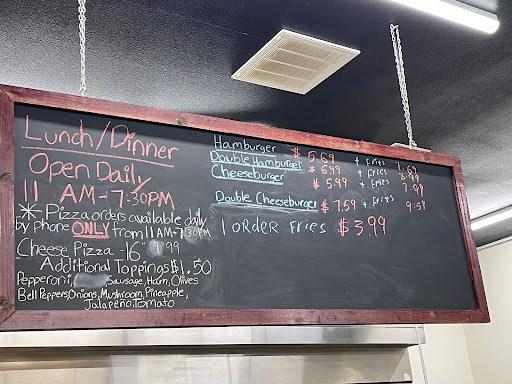 Lunch/Dinner
Open Daily
11 AM-7:30PM
* Pizza orders available daily
by phone ONLY from 11AM-7:30PM
Cheese Pizza -16" 9.99
Additional Toppings $1.50
Pepperoni, Sausage, Ham, Olives
Bell Peppers, Onions, Mushroom, Pineapple,
Jalapeño, Tomato
Hamburger - $5.69 + Fries
Double Hamburger $6.99 + Fries 8.99
Cheeseburger $5.99 + Fries 7.99
Double Cheeseburger $7.59 + Fries 9.59
1 Order Fries $3.99